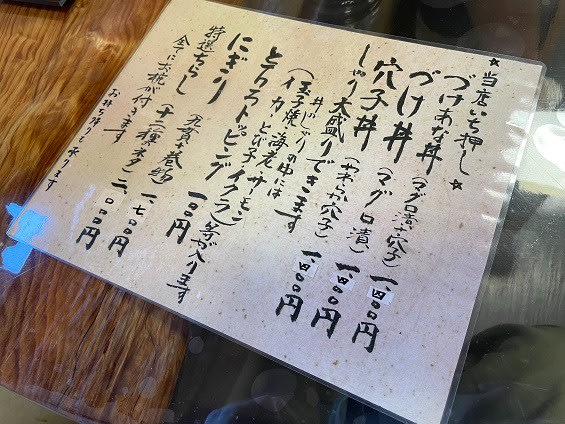 ☆当店いち押し☆
づけあな丼(マグロ漬+穴子)一、四〇〇円
づけ丼(マグロ漬)一、四〇〇円
穴子丼(やわらか穴子)一、四〇〇円
しゃり大盛りできます
丼じゃりの中には
(玉子焼・海老・サーモン
イカ・とび子・イクラ)等が入ります
とろろトッピング一〇〇円
にぎり 五貫+巻物 一、七〇〇円
特選ちらし(十二種ネタ)二、〇〇〇円
全てにお椀が付きます
お持ち帰りも承ります